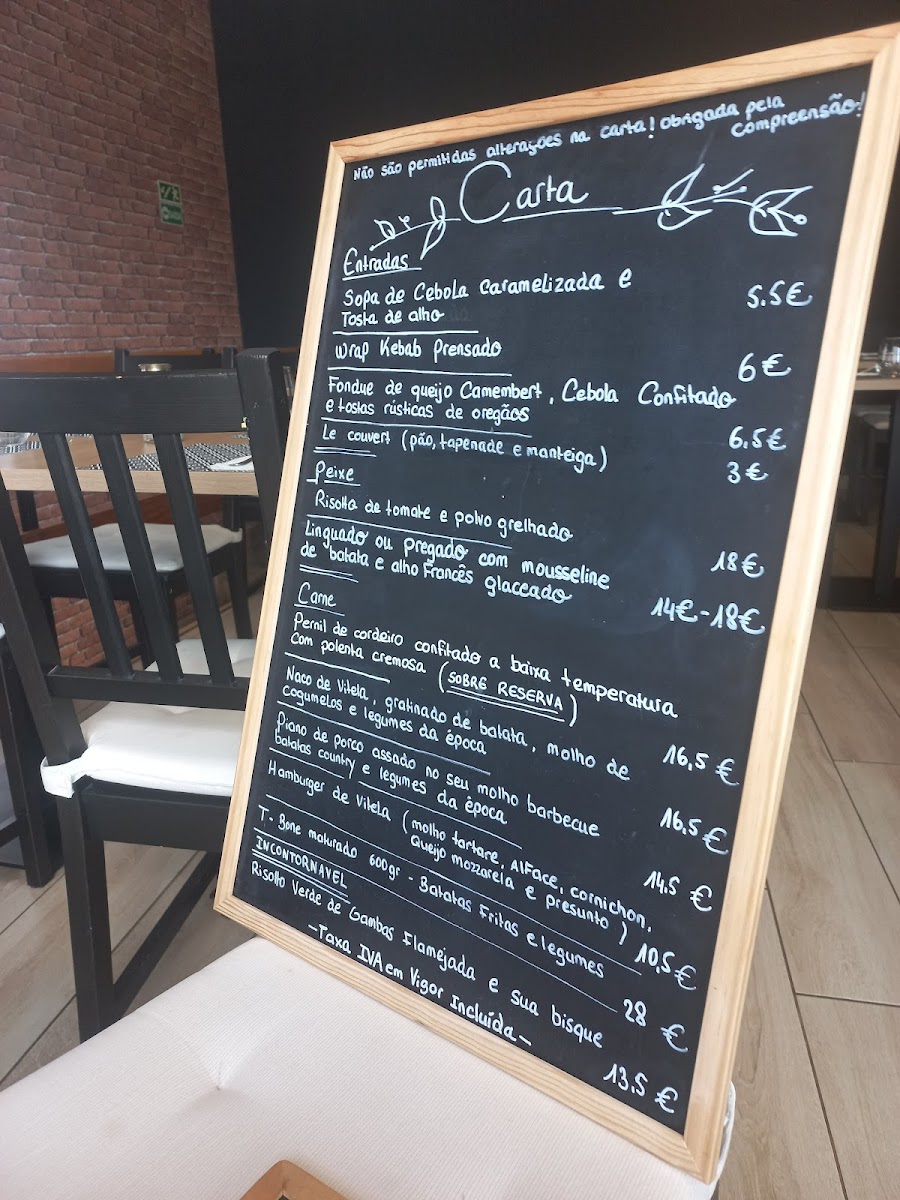 Não são permitidas alterações na carta! Obrigada pela
compreensão!
Carta
Entradas
Sopa de Cebola Caramelizada e
Tosta de alho
5.5€
Wrap Kebab Prensado
6€
Fondue de queijo Camembert, Cebola Confitado
e tostas rústicas de oregãos
6.5€
Le couvert (pão, tapenade e manteiga)
3€
Peixe
Risotto de tomate e polvo grelhado
18€
Linguado ou Pregado com mousseline
de batata e alho Francês glaceado
14€-18€
Carne
Pernil de cordeiro confitado a baixa temperatura
com polenta cremosa (SOBRE RESERVA)
16,5€
Naco de Vitela, gratinado de batata, molho de
cogumelos e legumes da época
16.5€
Piano de porco assado no seu molho barbecue
batatas country e legumes da época
14.5€
Hamburger de Vitela (molho tartare, Alface, cornichon,
Queijo mozzarela e presunto)
10,5€
T-Bone maturado 600gr - Batatas Fritas e legumes
28€
INCONTORNAVEL
Risotto Verde de Gambas Flamejada e sua bisque
13,5€
-Taxa IVA em Vigor Incluída-